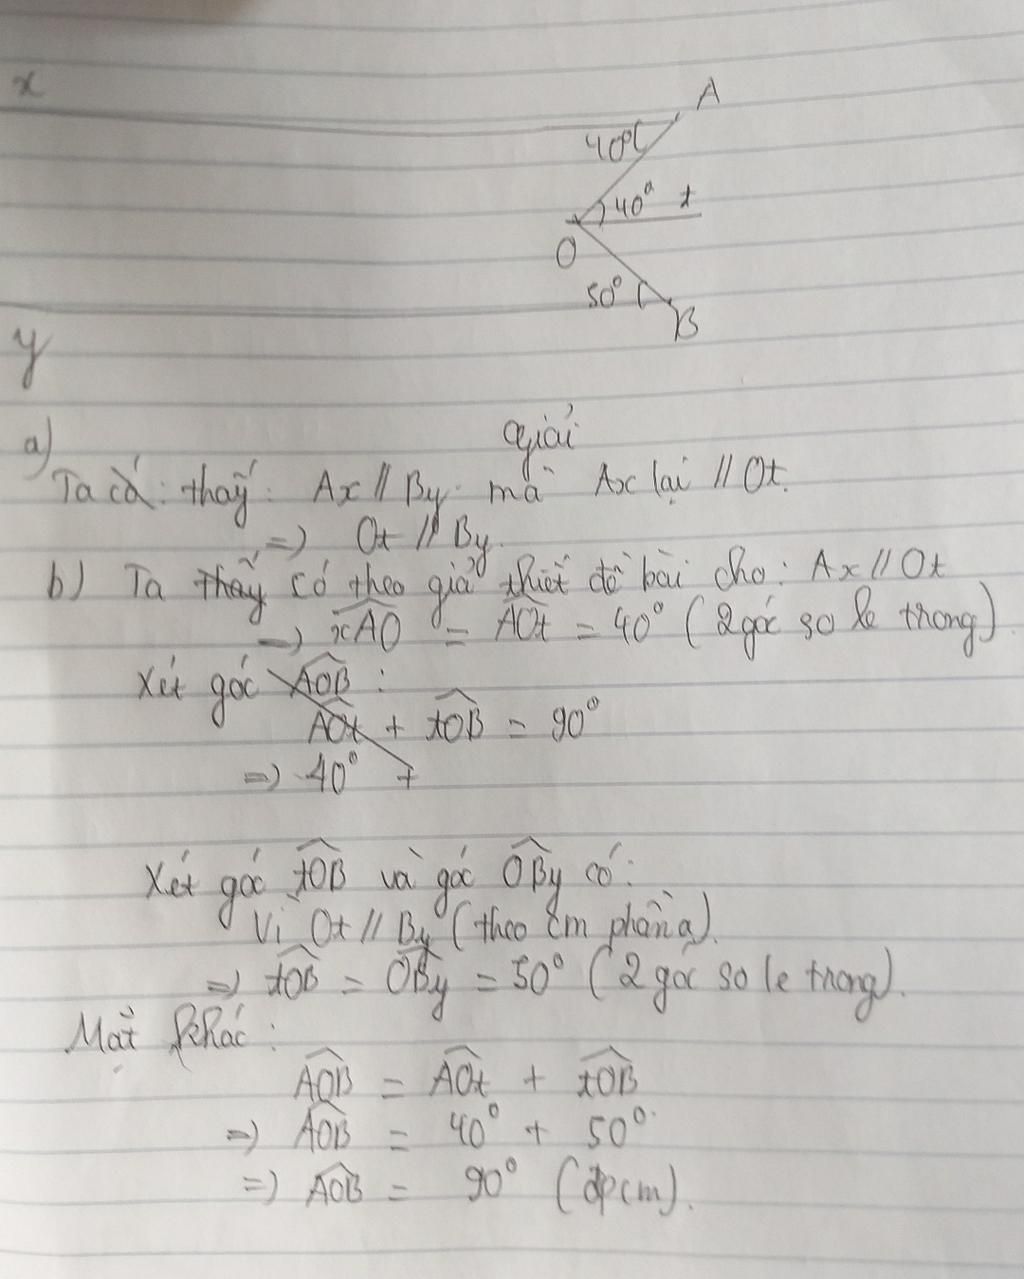 x
A
40°
40° t
O
50°
B
y
a)
Giải
Ta có: thấy: Ax // By mà Ax lại // Ot.
=> Ot // By
b) Ta thấy có theo giả thiết đề bài cho: Ax // Ot
=> xAO = AOt = 40° (2 góc so le trong)
Xét góc AOB:
AOt + tOB = 90°
=> 40° +
Xét góc tOB và góc OBy có:
Vì Ot // By (theo cm phần a).
=> tOB = OBy = 50° (2 góc so le trong).
Mặt khác:
AOB = AOt + tOB
=> AOB = 40° + 50°
=> AOB = 90° (đpcm).